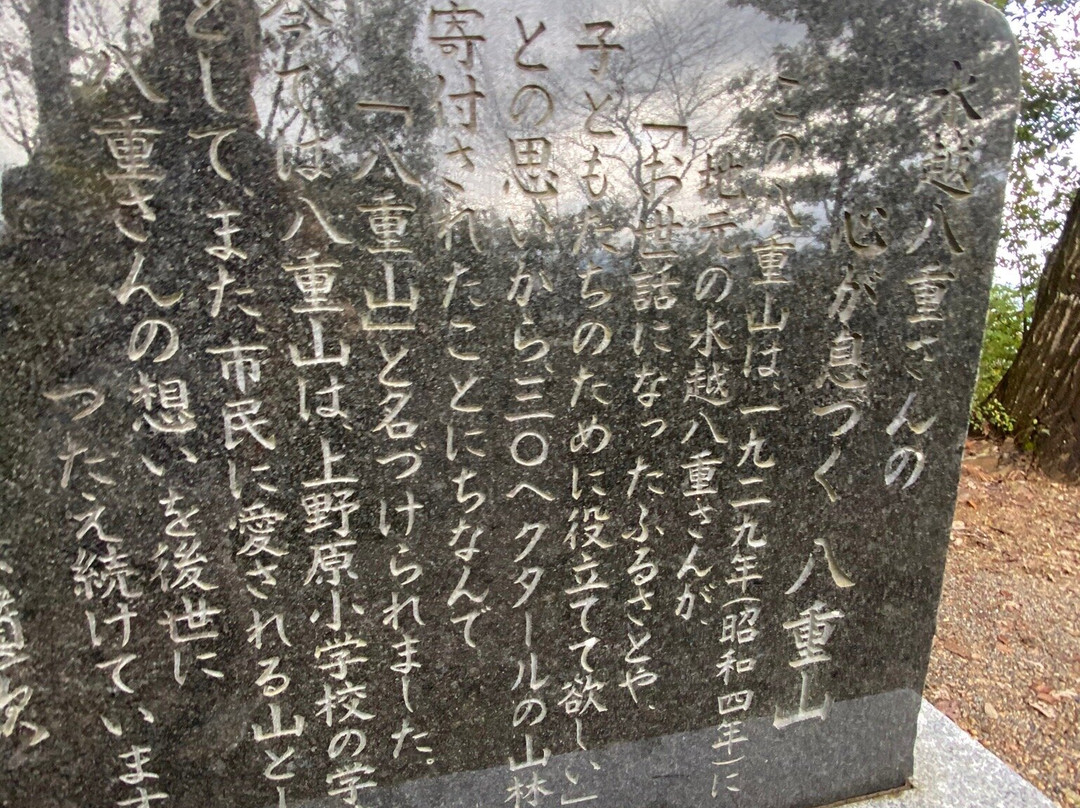 水越八重さんの
心が息づく 八重山
この八重山は、一九二九年(昭和四年)に
地元の水越八重さんが、
「お世話になったふるさとや、
子どもたちのために役立てて欲しい」
との思いから、三〇ヘクタールの山林
寄付されたことにちなんで
「八重山」と名づけられました。
今では八重山は、上野原小学校の学
として、また、市民に愛される山とし
八重さんの想いを後世に
つたえ続けています